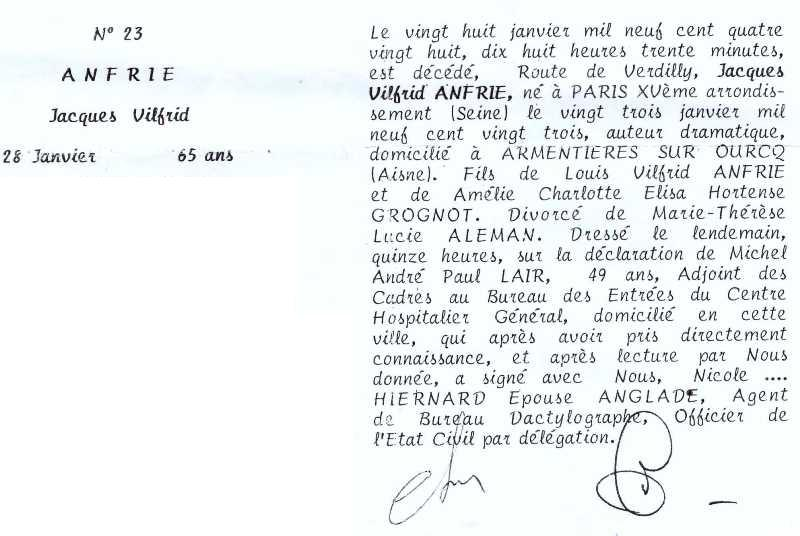 N° 23
ANFRIE
Jacques Vilfrid
28 Janvier 65 ans
Le vingt huit janvier mil neuf cent quatre
vingt huit, dix huit heures trente minutes,
est décédé, Route de Verdilly, Jacques
Vilfrid ANFRIE, né à PARIS XVème arrondis-
sement (Seine) le vingt trois janvier mil
neuf cent vingt trois, auteur dramatique,
domicilié à ARMENTIERES SUR OURCQ
(Aisne). Fils de Louis Vilfrid ANFRIE
et de Amélie Charlotte Elisa Hortense
GROGNOT. Divorcé de Marie-Thérèse
Lucie ALEMAN. Dressé le lendemain,
quinze heures, sur la déclaration de Michel
André Paul LAIR, 49 ans, Adjoint des
Cadres au Bureau des Entrées du Centre
Hospitalier Général, domicilié en cette
ville, qui après avoir pris directement
connaissance, et après lecture par Nous
donnée, a signé avec Nous, Nicole ....
HIERNARD Epouse ANGLADE, Agent
de Bureau Dactylographe, Officier de
l'Etat Civil par délégation.